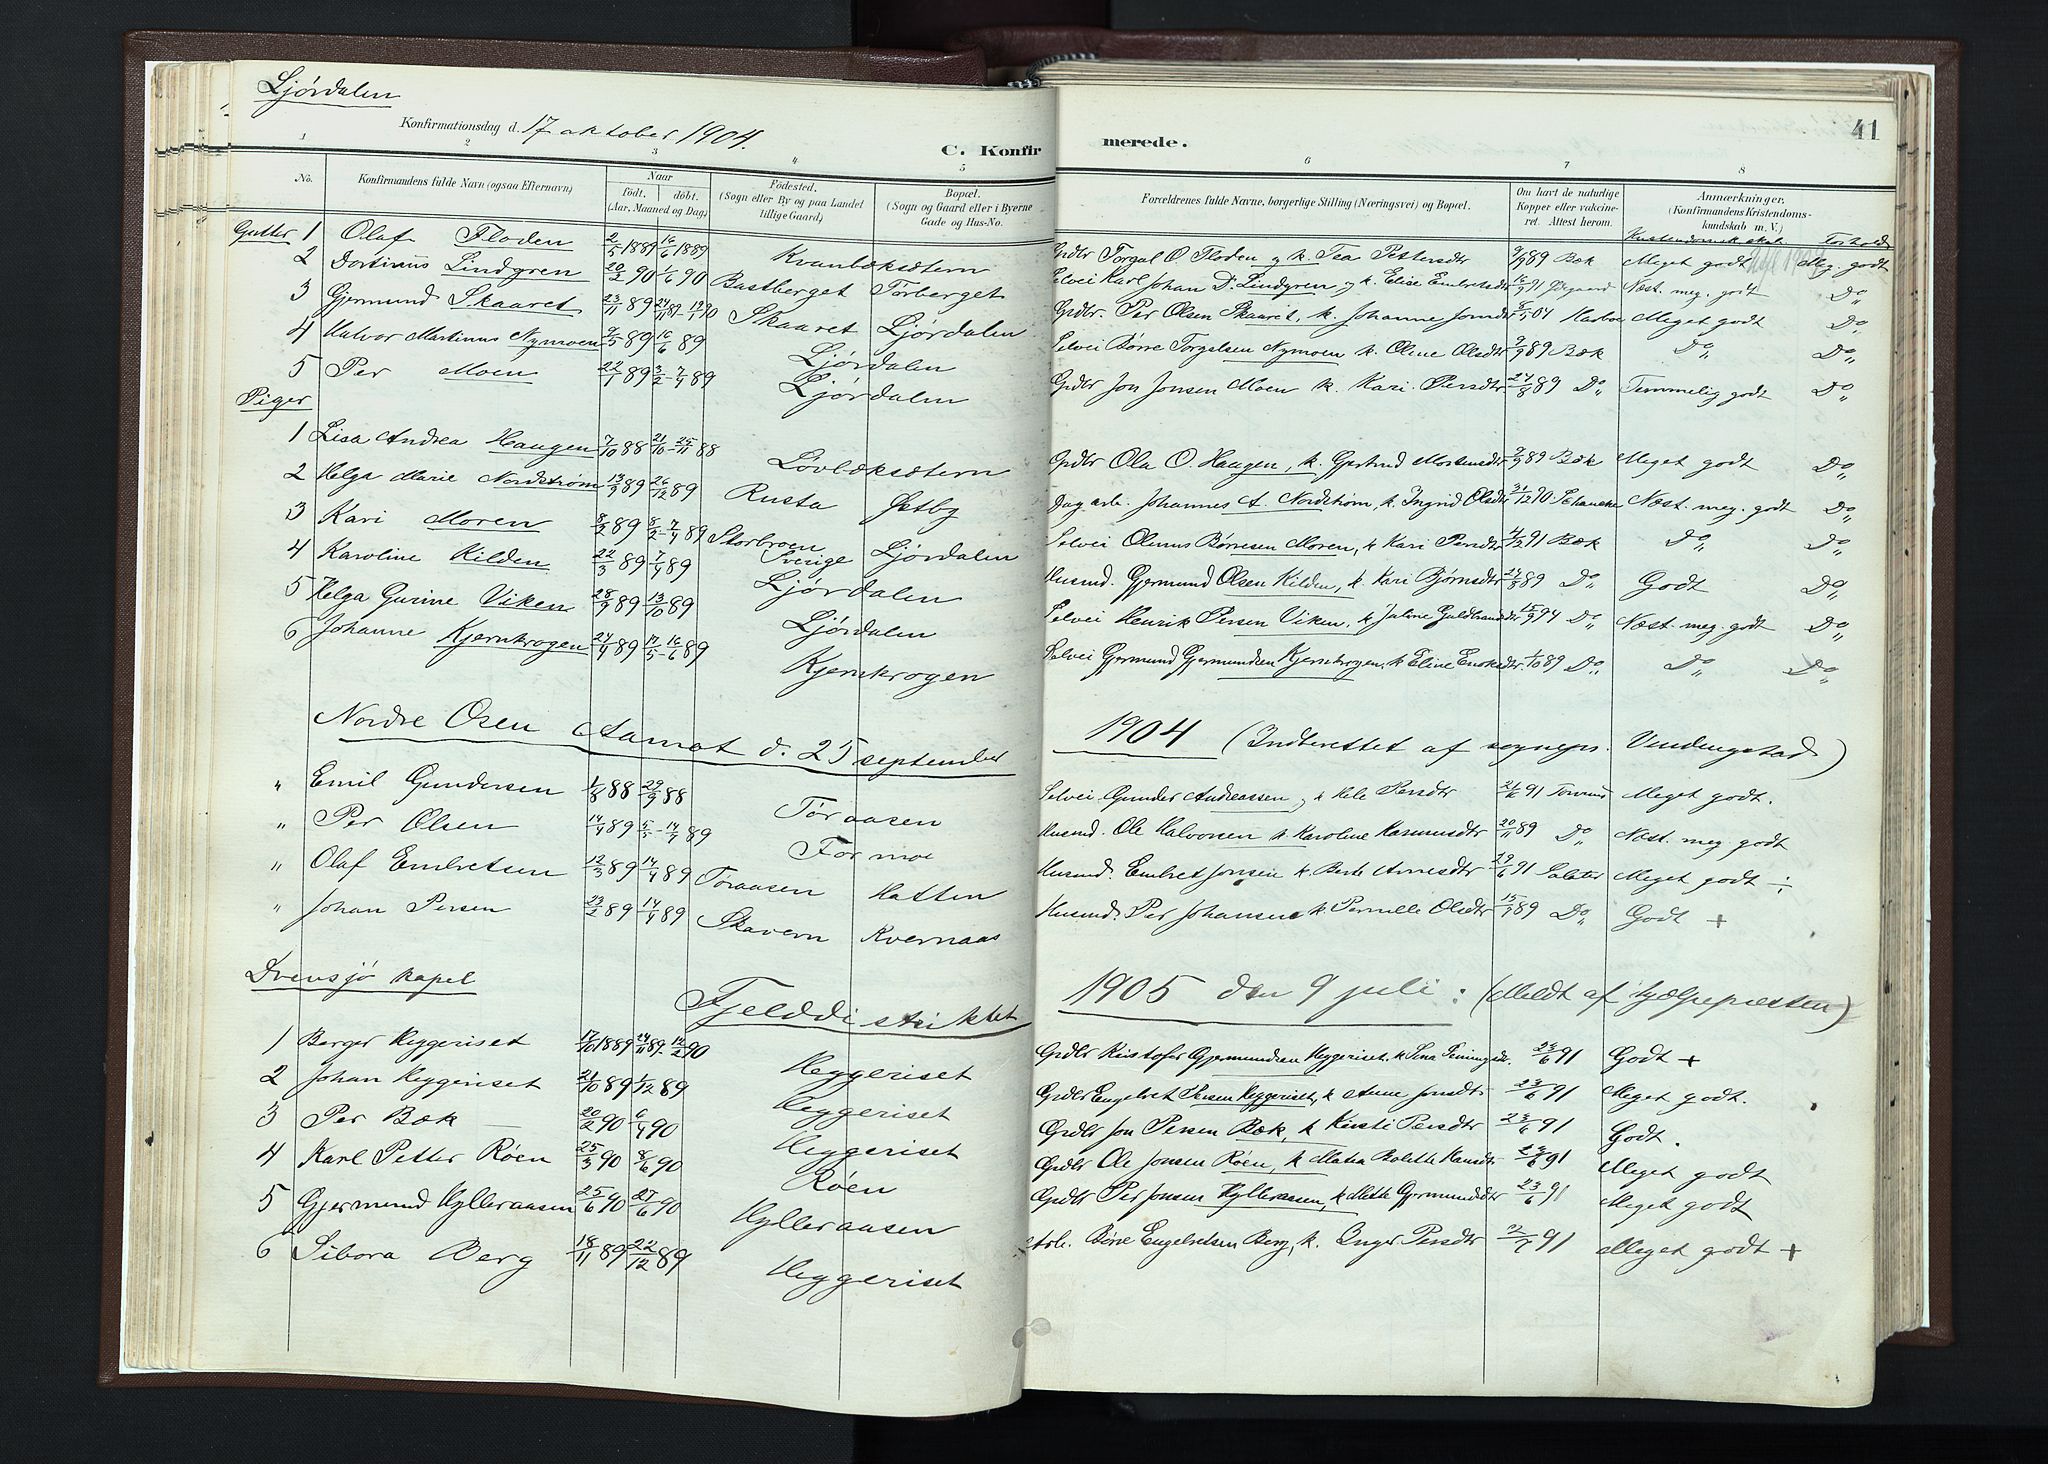 Ljørdalen
Konfirmationsdag d. 17 oktober 1904.
C. Konfirmerede. 41
1 2 3 4 5 6 7 8
No. Konfirmandens fulde Navn (ogsaa Efternavn) Naar født. døbt. (Aar, Maaned og Dag) Fødested. (Sogn eller By og paa Landet tillige Gaard) Bopæl. (Sogn og Gaard eller i Byerne Gade og Hus-No. Forældrenes fulde Navne, borgerlige Stilling (Næringsvei) og Bopæl. Om havt de naturlige Kopper eller vaccineret. Attest herom. Anmærkninger. (Konfirmandens Kristendomskundskab m. V.)
Kristendomskskab Forhold
Gutter 1 Olaf Floden 2/5 1889 16/6 1889 Kvanbæksætern Grdbr Torgal O. Floden og k. Tea Pettersdtr 9/9 89 Bæk Meget godt Meg. godt
2 Lindgren 20/3 90 1/6 90 Bastberget Tørberget Selvei Karl Johan D. Lindgren og k. Elise Embretsdtr 91 Næst. meg. godt Do
3 Gjermund Skaaret 23/11 89 24/11 89 - 90 Skaaret Ljørdalen Grdbr. Per Olsen Skaaret, k. Johanne Jonsdtr 04 Meget godt Do
4 Halvor Martinus Nymoen 9/5 89 16/6 89 Ljørdalen Selvei Børre Torgalsen Nymoen k. Oline Olsdtr 9/9 89 Bæk Do Do
5 Per Moen 22/1 89 3/2 - 7/4 89 Ljørdalen Grdbr Jon Jonsen Moen k. Kari Persdtr 24/8 89 Do Temmelig godt Do
Piger
1 Lisa Andrea Haugen 7/10 88 21/10 - 25/11 88 Lovbæksætern Grdbr Ola O. Haugen, k. Gjertrud Mortensdtr 9/9 89 Bæk Meget godt Do
2 Helga Marie Nordstrøm 13/9 89 26/12 89 Rusta Østby Dagarb. Johannes A. Nordstrøm, k Ingrid Olsdtr 31/12 90 Næst. meg. godt Do
3 Kari Moren 8/2 89 8/2 - 7/4 89 Storbroen Sverige Ljørdalen Selvei Olinus Børresen Moren, k Kari Persdtr 91 Bæk Do Do
4 Karoline Kilden 22/3 89 7/4 89 Ljørdalen Husmd. Gjermund Olsen Kilden, k. Kari Bjørnsdtr 24/8 89 Do Godt Do
5 Helga Gurine Viken 28/9 89 13/10 89 Ljørdalen Selvei Henrik Persen Viken, k Juline Guldbrandsdtr 15/9 94 Do Næst. meg. godt Do
6 Johanne Kjernkrogen 24/4 89 17/5 - 16/6 89 Kjernkrogen Selvei Gjermund Gjermundsen Kjernkrogen, k Eline Eriksdtr. 1/10 89 Do Do Do
Nordre Osen Aamot d. 25 september 1904 (Indberettet af sognepr. Vendingstad)
" Emil Gundersen 1/8 88 29/9 88 Tøraasen Selvei Gunder Andreassen, k Persdtr 91 Meget godt.
" Per Olsen 14/4 89 5/5 - 14/7 89 Formoe Husmd. Ole Halvorsen k Karoline Rasmusdtr 20/11 89 Do Næst. meg. godt
" Olaf Embretsen 12/3 89 14/4 89 Tøraasen Hatten Husmd. Embret Jonsen k Berte Arnesdtr 29/6 91 Meget godt ÷
" Johan Persen 23/2 89 14/4 89 Skavern Kvernaas Husmd. Per Johansen k. Pernille Olsdtr 15/9 89 Do Godt +
Drevsjø kapel Fjelddistriktet 1905 den 9 juli: (Meldt af hjælpepræsten)
1 Berger Heggeriset 17/10 1889 24/11 89 - 14/2 90 Heggeriset Grdbr Kristofer Gjermundsen Heggeriset, k. Sina 23/6 91 Godt +
2 Johan Heggeriset 21/10 89 1/12 89 Heggeriset Grdbr Engelret Heggeriset, k Anne Jonsdtr 23/6 91 Meget godt.
3 Per Bæk 20/2 90 6/4 90 Heggeriset Grdbr Jon Persen Bæk, k Kirsti Persdtr 23/6 91 Godt.
4 Karl Petter Røen 25/3 90 8/6 90 Røen Grdbr Ole Jonsen Røen, k Matea Bolette Hansdtr 23/6 91 Meget godt
5 Gjermund Hylleraasen 25/6 90 27/6 90 Hylleraasen Grdbr Per Jonsen Hylleraasen, k Mette Gjermundsdtr 23/6 91 Meget godt
6 Sibora Berg 18/11 89 22/12 89 Heggeriset Arb. Børre Engelretsen Berg, k. Inger Persdtr 2/7 91 Meget godt +